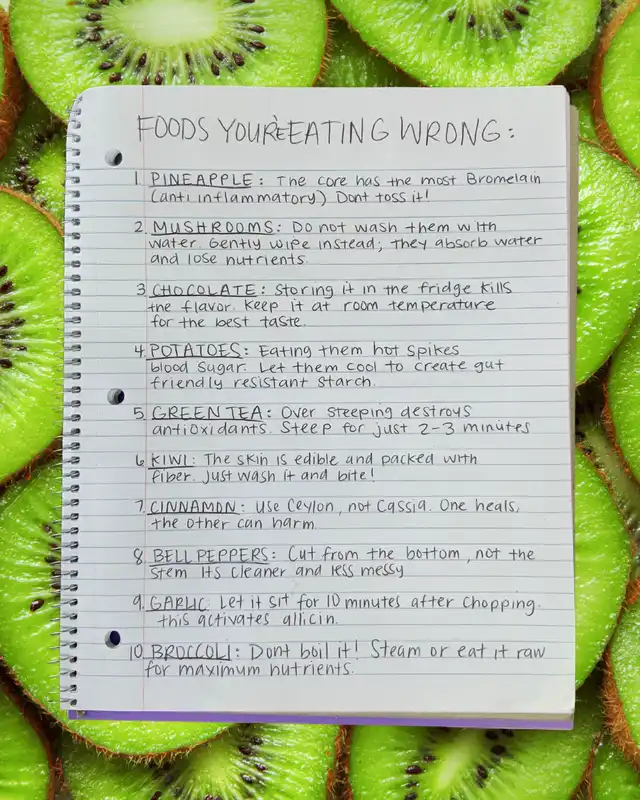 FOODS YOU'RE EATING WRONG:
1. PINEAPPLE: The core has the most Bromelain
(anti inflammatory) Dont toss it!
2. MUSHROOMS: Do not wash them with
water. Gently wipe instead; they absorb water
and lose nutrients.
3. CHOCOLATE: Storing it in the fridge kills
the flavor. Keep it at room temperature
for the best taste.
4. POTATOES: Eating them hot spikes
blood sugar. Let them cool to create gut
friendly resistant starch.
5. GREEN TEA: Over steeping destroys
antioxidants. Steep for just 2-3 minutes
6. KIWI: The skin is edible and packed with
fiber. Just wash it and bite!
7. CINNAMON: Use Ceylon, not Cassia. One heals,
the other can harm.
8. BELL PEPPERS: Cut from the bottom, not the
stem Its cleaner and less messy
9. GARLIC. Let it sit for 10 minutes after chopping.
this activates allicin.
10. BROCCOLI: Dont boil it! Steam or eat it raw
for maximum nutrients.